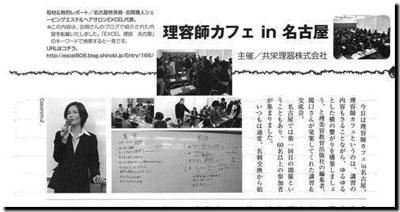 取材&熱烈レポート/名古屋特派員・吉岡貴人シェ
ービングエステ&ヘアサロンEXCEL代表。
本この内容は、吉岡さんのブログで紹介された内
容を転載いたしました。「EXCEL 理容 名古屋」
のキーワードで検索すると一発です。
URLはコチラ。
http://excel808.blog.shinobi.jp/Entry/166/
理容師カフェ in 名古屋
主催/共栄理器株式会社
今日は理容師カフェin名古屋。
理容師カフェというのは、講習の
内容もさることながら、ゆるゆる
とした横の繋がりを構築しましょ
う、と理美容教育出版社の編集者、
関口さんが発案してくれた講習&
交流会。
名古屋では第一回目の開催とい
うこともあり、60名以上の参加者
が集まりました。
いつもは通常、名刺交換から始